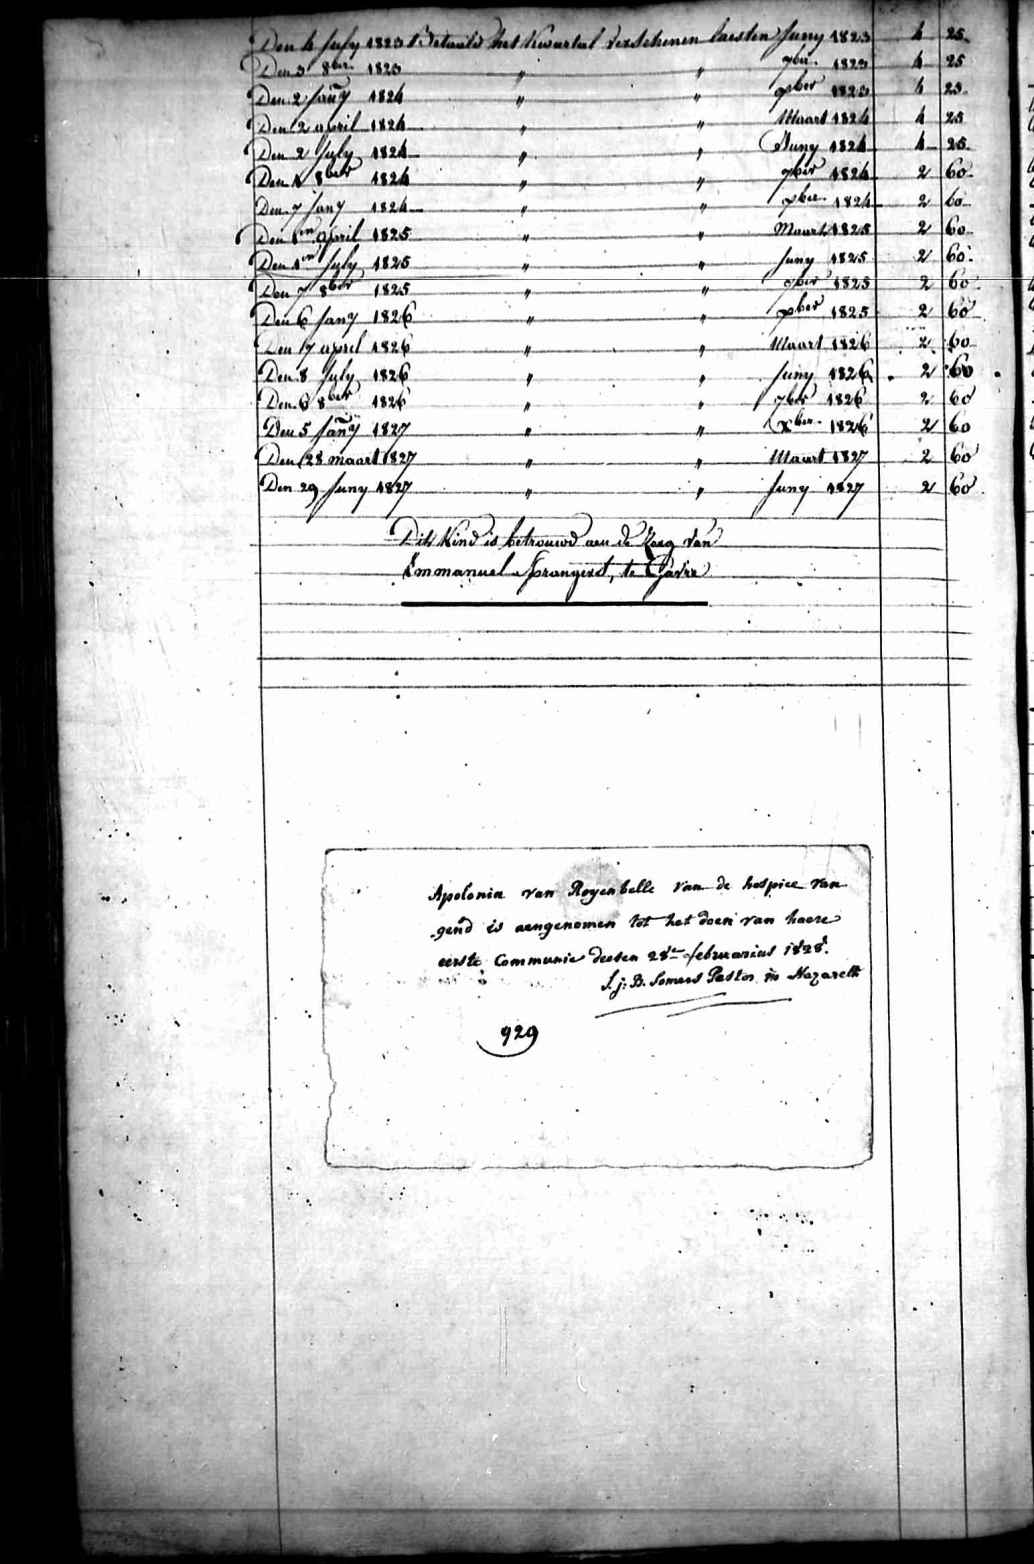 Den 4 July 1823 Betaald het Kwartal verschenen laesten Juny 1823 4 25
Den 3 8ber 1823 " " 7ber 1823 4 25
Den 2 Jany 1824 " " xber 1823 4 25
Den 2 april 1824 " " Maart 1824 4 25
Den 2 July 1824 " " Juny 1824 4 25
Den 1 8ber 1824 " " 7ber 1824 2 60
Den 7 Jany 1824 " " xber 1824 2 60
Den 1en april 1825 " " Maart 1825 2 60
Den 1en July 1825 " " Juny 1825 2 60
Den 7 8ber 1825 " " 7ber 1825 2 60
Den 6 Jany 1826 " " xber 1825 2 60
Den 17 april 1826 " " Maart 1826 2 60
Den 8 July 1826 " " Juny 1826 2 60
Den 6 8ber 1826 " " 7ber 1826 2 60
Den 5 Jany 1827 " " xber 1826 2 60
Den 28 maart 1827 " " Maart 1827 2 60
Den 29 Juny 1827 " " Juny 1827 2 60
Dit Kind is betrouwd aen de Zorg van
Emmanuel Spranyers, te Gavre
Apolonia van Royenbelle van de hospice van
gend is aengenomen tot het doen van haere
eerste Communie desen 28e februarius 1828.
J. j: B. Somers Pastor in Nazareth
929